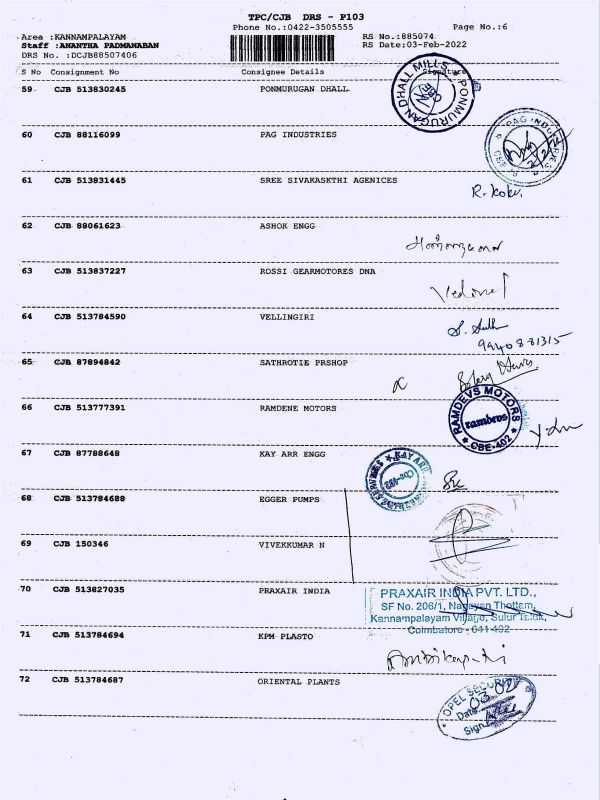 TPC/CJB DRS - P103
Phone No.:0422-3505555 Page No.:6
Area :KANNAMPALAYAM RS No.:885074
Staff :ANANTHA PADMANABAN RS Date:03-Feb-2022
DRS No. :DCJB88507406
S No Consignment No Consignee Details Signature
59 CJB 513830245 PONMURUGAN DHALL
PONMURUGAN DHALL MILLS
60 CJB 88116099 PAG INDUSTRIES
PAG INDUSTRIES
61 CJB 513831445 SREE SIVAKASKTHI AGENICES
62 CJB 88061623 ASHOK ENGG
63 CJB 513837227 ROSSI GEARMOTORES DNA
64 CJB 513784590 VELLINGIRI
9940881315
65 CJB 87894842 SATHROTIE PRSHOP
66 CJB 513777391 RAMDENE MOTORS
RAMDEVS MOTORS
ramdevs
CBE-402
67 CJB 87788648 KAY ARR ENGG
68 CJB 513784688 EGGER PUMPS
69 CJB 150346 VIVEKKUMAR N
70 CJB 513827035 PRAXAIR INDIA
PRAXAIR INDIA PVT. LTD.,
SF No. 206/1, Narayan Thottam,
Kannampalayam Village, Sulur Taluk,
Coimbatore - 641 402
71 CJB 513784694 KPM PLASTO
72 CJB 513784687 ORIENTAL PLANTS
OPEL SECURITY
Date
Sign